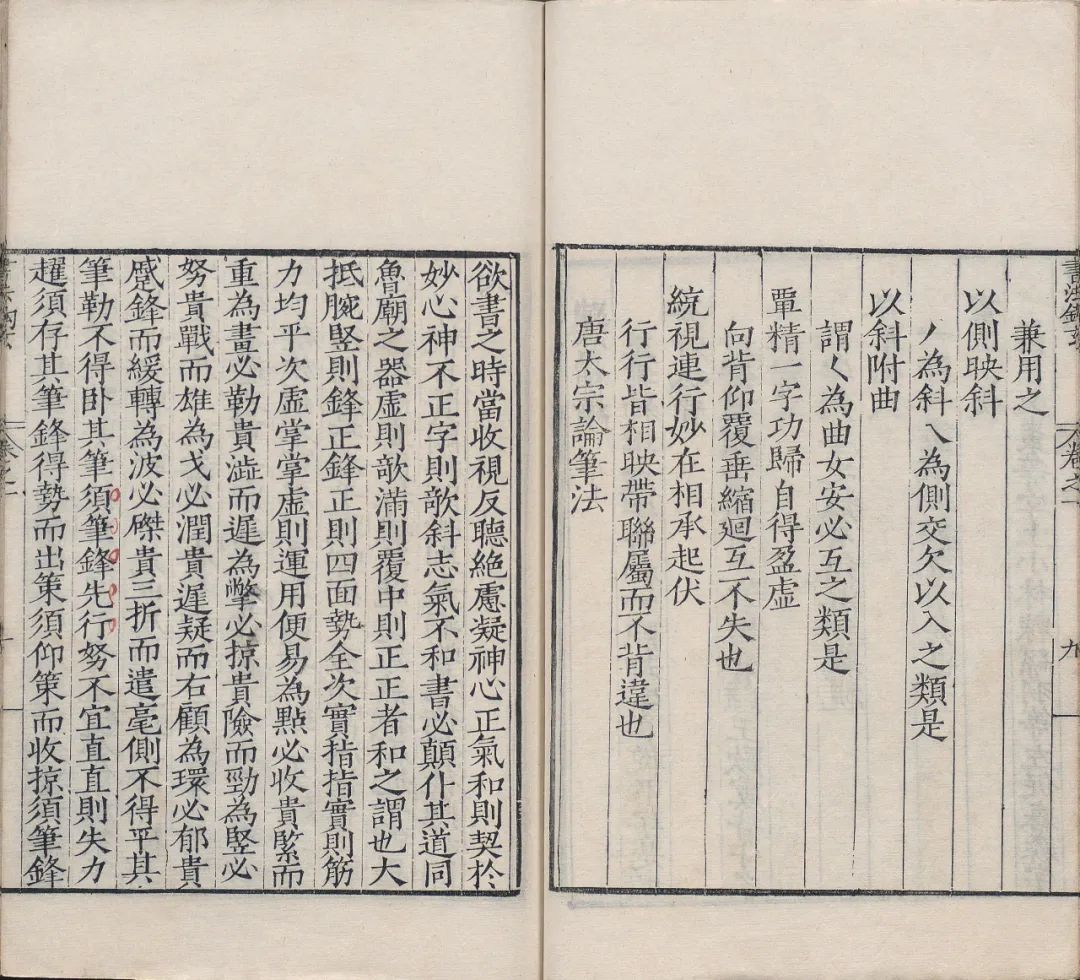 書法鉤玄
卷之一
九
兼用之
以側映斜
丿為斜乀為側交欠以入之類是
以斜附曲
謂𡿨為曲女安必互之類是
覃精一字功歸自得盈虛
向背仰覆垂縮廻互不失也
統視連行妙在相承起伏
行行皆相映帶聯屬而不背違也
唐太宗論筆法
欲書之時當收視反聽絶慮凝神心正氣和則契於
妙心神不正字則欹斜志氣不和書必顛仆其道同
魯廟之器虛則欹滿則覆中則正正者和之謂也大
抵腕竖則鋒正鋒正則四面勢全次實指指實則筋
力均平次虛掌掌虛則運用便易為點必收貴緊而
重為畫必勒貴澁而遲為撆必掠貴險而勁為竪必
努貴戰而雄為戈必潤貴遲疑而右顧為環必郁貴
蹙鋒而緩轉為波必磔貴三折而遣毫側不得平其
筆勒不得卧其筆須筆鋒先行努不宜直直則失力
趯須存其筆鋒得勢而出策須仰策而收掠須筆鋒